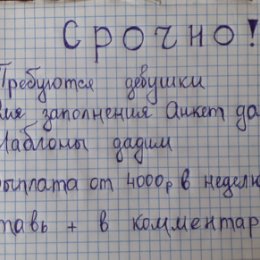 Срочно!
Требуются девушки
для заполнения Анкет да
Шаблоны дадим
выплата от 4000р в неделю
ставь + в комментар